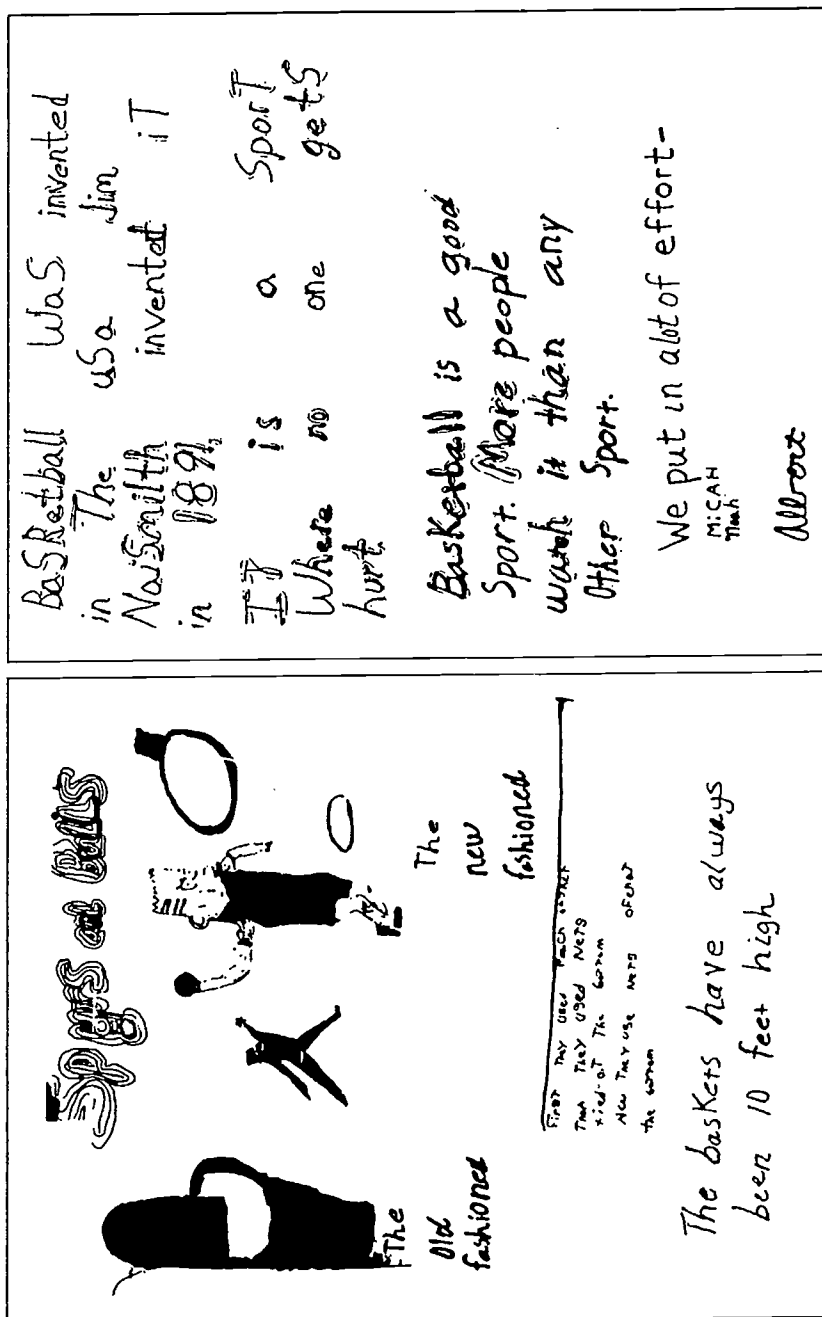 Spurs at Bulls
The
Old
fashioned
The
new
fashioned
First They used Peach basket
Then They used Nets
tied-at The bottom
Now They use Nets
the bottom
The basKets have always
been 10 feet high
BaSketball WaS invented
in The uSa Jim
NaiSmilth invented iT
in 1891,
IT is a SporT
Where no one getS
hurt.
BasKetball is a good
Sport. More people
watch it than any
Other Sport.
We put in alot of effort-
MiCAH
Noah
Albert